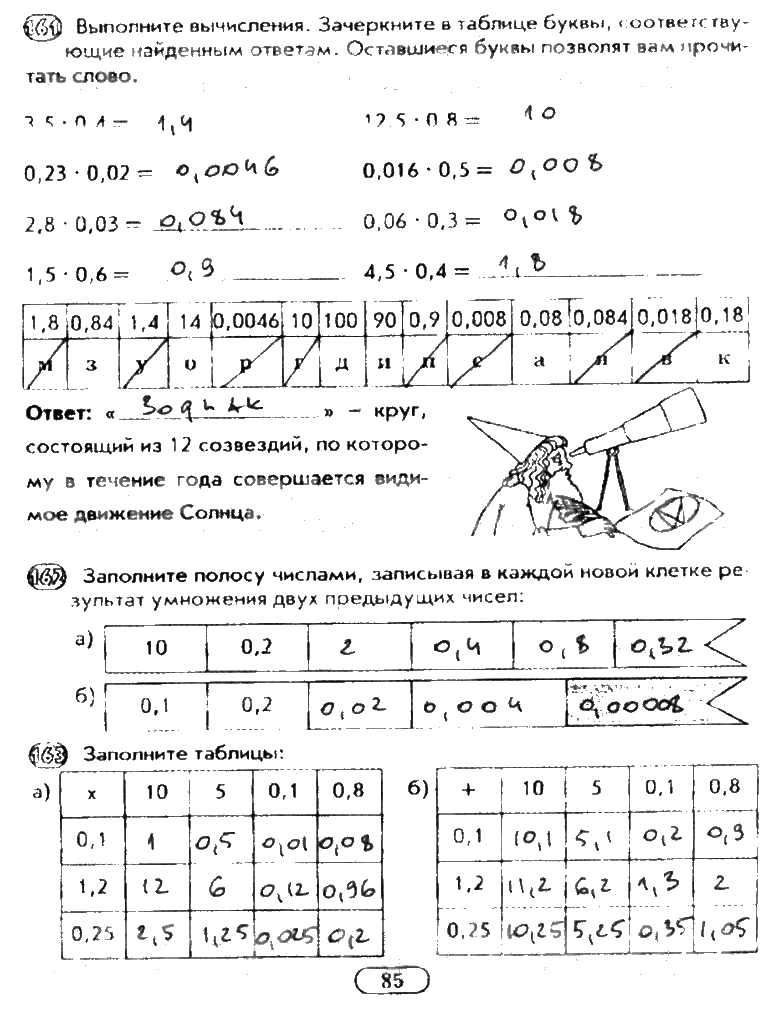 161 Выполните вычисления. Зачеркните в таблице буквы, соответству-
ющие найденным ответам. Оставшиеся буквы позволят вам прочи-
тать слово.
3,5 · 0,4 = 1,4 12,5 · 0,8 = 10
0,23 · 0,02 = 0,0046 0,016 · 0,5 = 0,008
2,8 · 0,03 = 0,084 0,06 · 0,3 = 0,018
1,5 · 0,6 = 0,9 4,5 · 0,4 = 1,8
1,8 0,84 1,4 14 0,0046 10 100 90 0,9 0,008 0,08 0,084 0,018 0,18
м з у о р г д и п е а н в к
Ответ: « Зодиак » – круг,
состоящий из 12 созвездий, по которо-
му в течение года совершается види-
мое движение Солнца.
162 Заполните полосу числами, записывая в каждой новой клетке ре-
зультат умножения двух предыдущих чисел:
а) 10 0,2 2 0,4 0,8 0,32
б) 0,1 0,2 0,02 0,004 0,00008
163 Заполните таблицы:
а) х 10 5 0,1 0,8 б) + 10 5 0,1 0,8
0,1 1 0,5 0,01 0,08 0,1 10,1 5,1 0,2 0,9
1,2 12 6 0,12 0,96 1,2 11,2 6,2 1,3 2
0,25 2,5 1,25 0,025 0,2 0,25 10,25 5,25 0,35 1,05
85